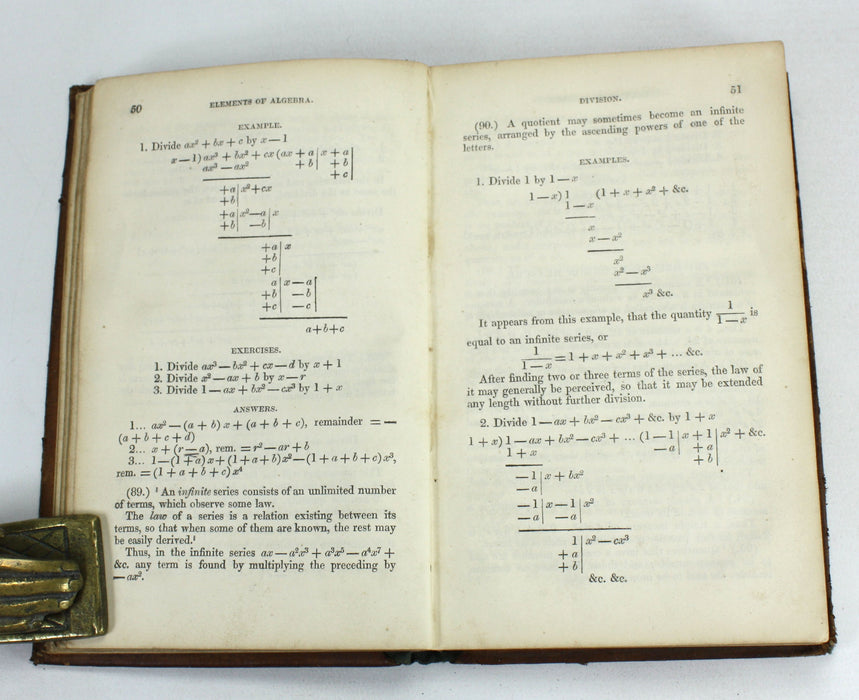 50
ELEMENTS OF ALGEBRA.
EXAMPLE.
1. Divide ax² + bx + c by x — 1
x — 1) ax³ + bx² + cx (ax + a | x + a |
ax³ — ax² + b | + b |
+ c |
+a | x² + cx
+b |
+a | x² — a | x
+b | — b |
+a | x
+b |
+c |
a | x — a |
+b | — b |
+c | — c |
a + b + c
EXERCISES.
1. Divide ax³ — bx² + cx — d by x + 1
2. Divide x² — ax + b by x — r
3. Divide 1 — ax + bx² — cx³ by 1 + x
ANSWERS.
1... ax² — (a + b) x + (a + b + c), remainder = —
(a + b + c + d)
2... x + (r — a), rem. = r² — ar + b
3... 1 — (1 + a) x + (1 + a + b) x² — (1 + a + b + c) x³,
rem. = (1 + a + b + c) x⁴
(89.) ¹ An infinite series consists of an unlimited number
of terms, which observe some law.
The law of a series is a relation existing between its
terms, so that when some of them are known, the rest may
be easily derived.¹
Thus, in the infinite series ax — a²x³ + a³x⁵ — a⁴x⁷ +
&c. any term is found by multiplying the preceding by
— ax².
51
DIVISION.
(90.) A quotient may sometimes become an infinite
series, arranged by the ascending powers of one of the
letters.
EXAMPLES.
1. Divide 1 by 1 — x
1 — x) 1 (1 + x + x² + &c.
1 — x
x
x — x²
x²
x² — x³
x³ &c.
It appears from this example, that the quantity 1/(1 — x) is
equal to an infinite series, or
1/(1 — x) = 1 + x + x² + x³ + ... &c.
After finding two or three terms of the series, the law of
it may generally be perceived, so that it may be extended
any length without further division.
2. Divide 1 — ax + bx² — cx³ + &c. by 1 + x
1 + x) 1 — ax + bx² — cx³ + ... (1 — 1 | x + 1 | x² + &c.
1 + x — a | + a |
+ b |
— 1 | x + bx²
— a |
— 1 | x — 1 | x²
— a | — a |
1 | x² — cx³
+ a |
+ b |
&c. &c.